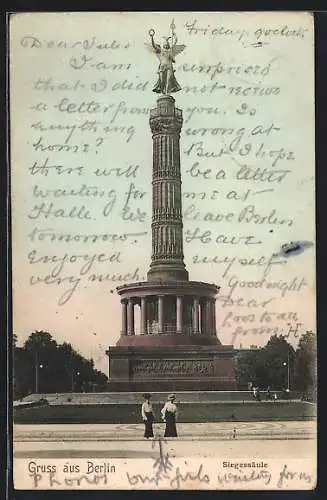 Dear Jules Friday 9 oclock
I am surprised
that I did not receive
a letter from you. Is
anything wrong at
home? But I hope
there will be a letter
waiting for me at
Halle. We leave Berlin
tomorrow. Have
enjoyed myself
very much. Goodnight
dear
love to all
from H
Gruss aus Berlin Siegessäule
girls waiting for us